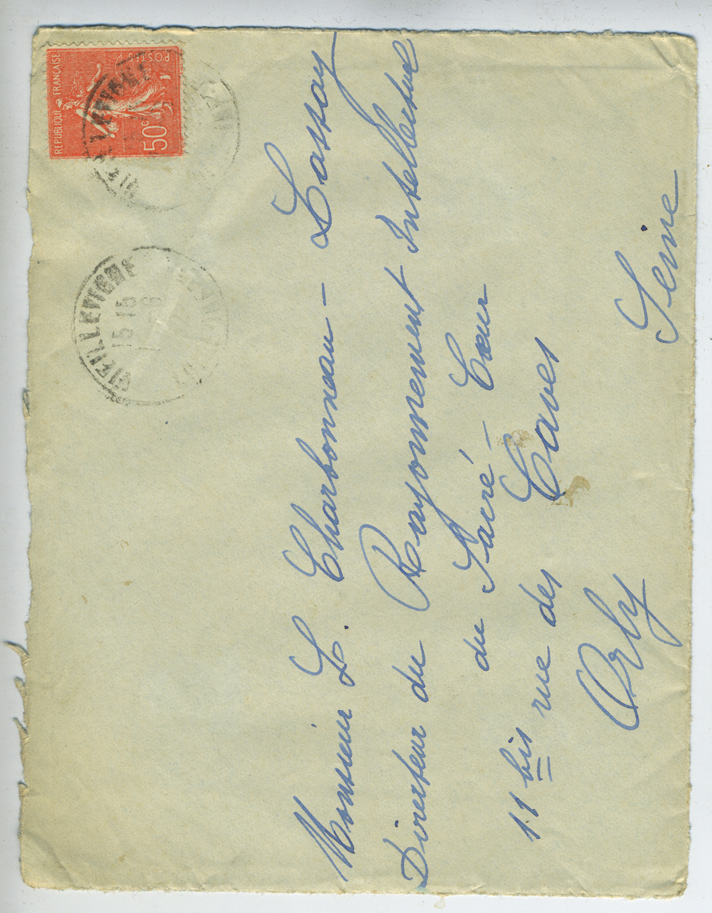 REPUBLIQUE FRANÇAISE
POSTES
50c
VIEILLEVIGNE
15-15
Monsieur L. Charbonneau - Lassay
Directeur du Rayonnement Intellectuel
du Sacré - Cœur
11 bis rue des Caves
Orly Seine